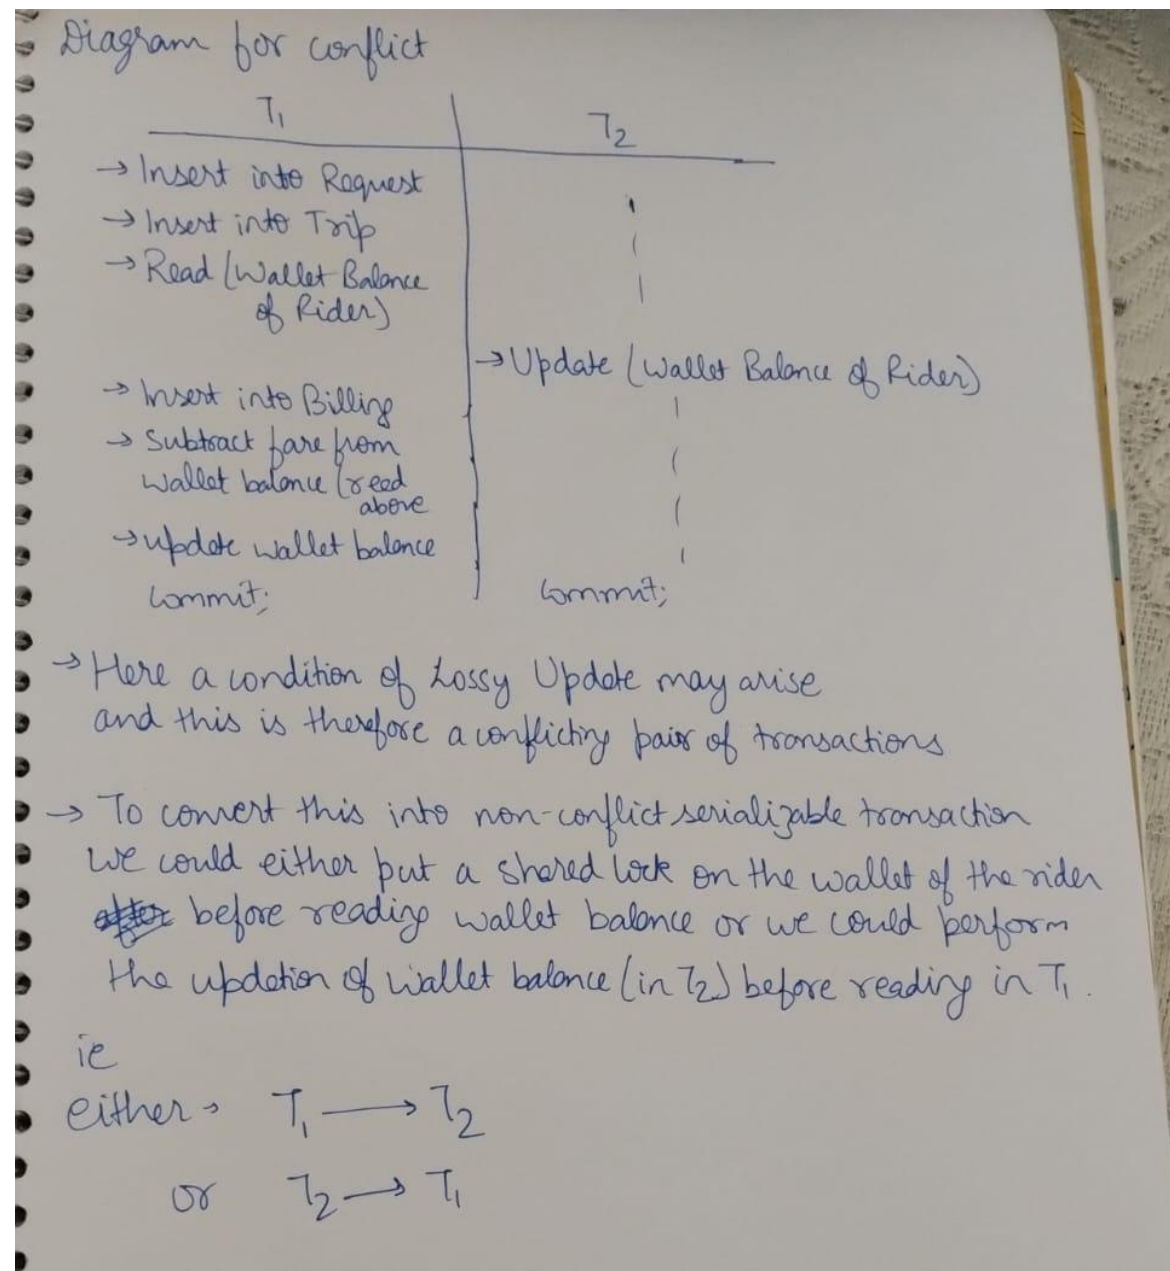 Diagram for conflict
T1 T2
→ Insert into Request
→ Insert into Trip
→ Read (Wallet Balance
of Rider)
→ Update (Wallet Balance of Rider)
→ Insert into Billing
→ Subtract fare from
wallet balance (read
above
→ update wallet balance
Commit; Commit;
→ Here a condition of Lossy Update may arise
and this is therefore a conflicting pair of transactions
→ To convert this into non-conflict serializable transaction
we could either put a shared lock on the wallet of the rider
before reading wallet balance or we could perform
the updation of wallet balance (in T2) before reading in T1.
ie
either → T1 → T2
or T2 → T1